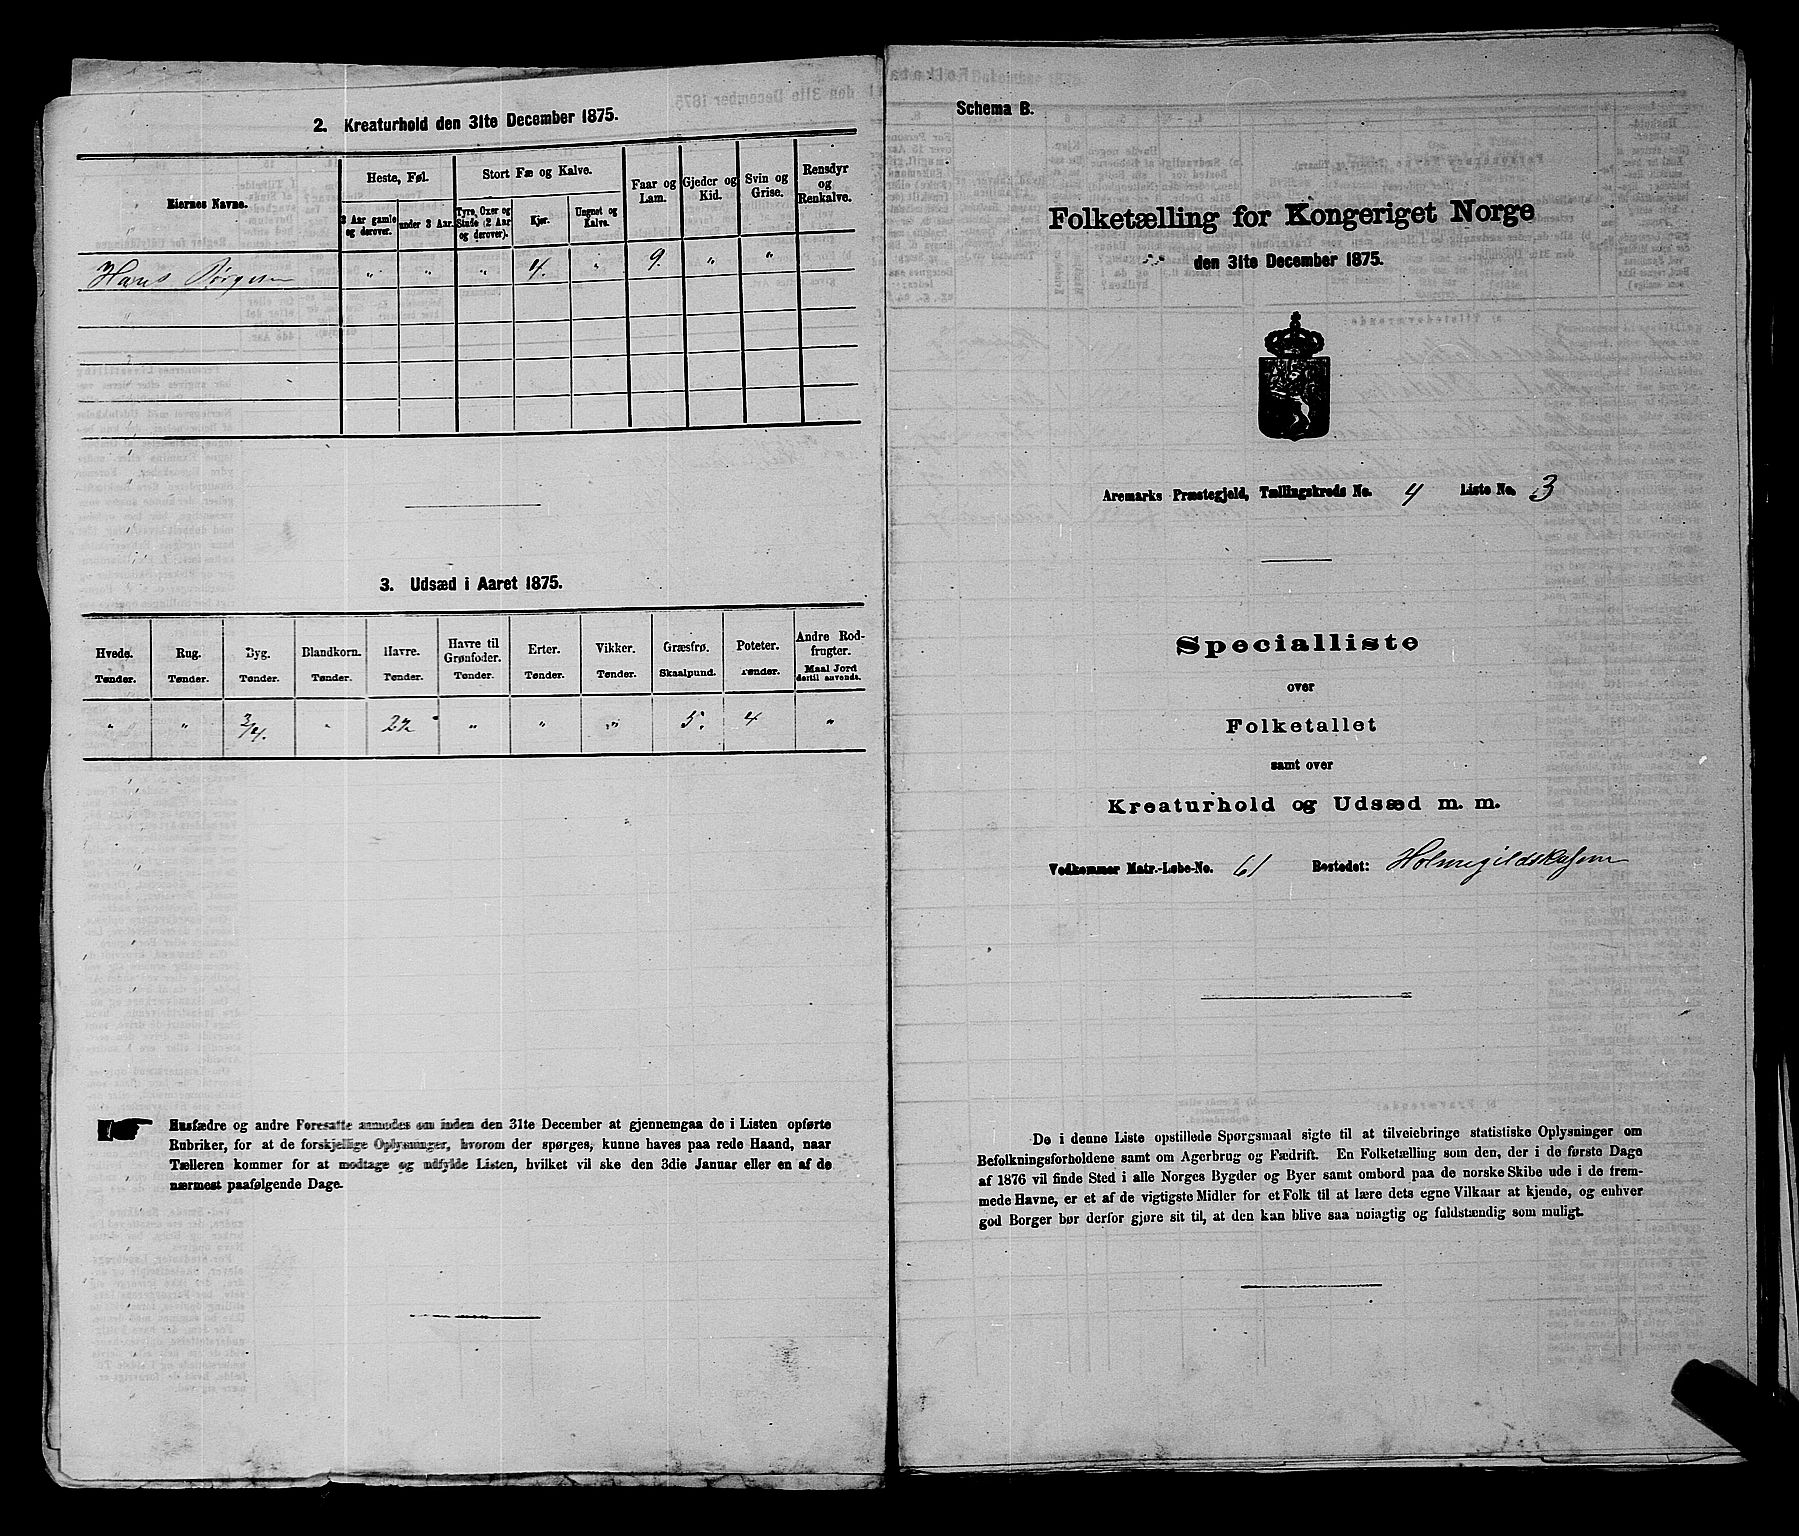 2. Kreaturhold den 31te December 1875.
Eiernes Navne.
Heste, Føl.
Stort Fæ og Kalve.
Faar og Lam.
Gjeder og Kid.
Svin og Grise.
Rensdyr og Renkalve.
3 Aar gamle og derover.
under 3 Aar.
Tyre, Oxer og Stude (2 Aar og derover).
Kjør.
Ungnøt og Kalve.
Hans Jørgensen " " " 4. " 9. " "
3. Udsæd i Aaret 1875.
Hvede. Rug. Byg. Blandkorn. Havre. Havre til Grønfoder. Erter. Vikker. Græsfrø. Poteter. Andre Rodfrugter.
Tønder. Tønder. Tønder. Tønder. Tønder. Tønder. Tønder. Tønder. Skaalpund. Tønder. Maal Jord dertil anvendt.
" " 3/4. " 2½ " " " 5. 4 "
Husfædre og andre Foresatte anmodes om inden den 31te December at gjennemgaa de i Listen opførte
Rubriker, for at de forskjellige Oplysninger, hvorom der spørges, kunne haves paa rede Haand, naar
Tælleren kommer for at modtage og udfylde Listen, hvilket vil ske den 3die Januar eller en af de
nærmest paafølgende Dage.
Schema B.
Folketælling for Kongeriget Norge
den 31te December 1875.
Aremarks Præstegjeld, Tællingskreds No. 4 Liste No. 3
Specialliste
over
Folketallet
samt over
Kreaturhold og Udsæd m. m.
Vedkommer Matr.-Løbe-No. 61 Bostedet:
De i denne Liste opstillede Spørgsmaal sigte til at tilveiebringe statistiske Oplysninger om
Befolkningsforholdene samt om Agerbrug og Fædrift. En Folketælling som den, der i de første Dage
af 1876 vil finde Sted i alle Norges Bygder og Byer samt ombord paa de norske Skibe ude i de frem-
mede Havne, er et af de vigtigste Midler for et Folk til at lære dets egne Vilkaar at kjende, og enhver
god Borger bør derfor gjøre sit til, at den kan blive saa nøiagtig og fuldstændig som muligt.